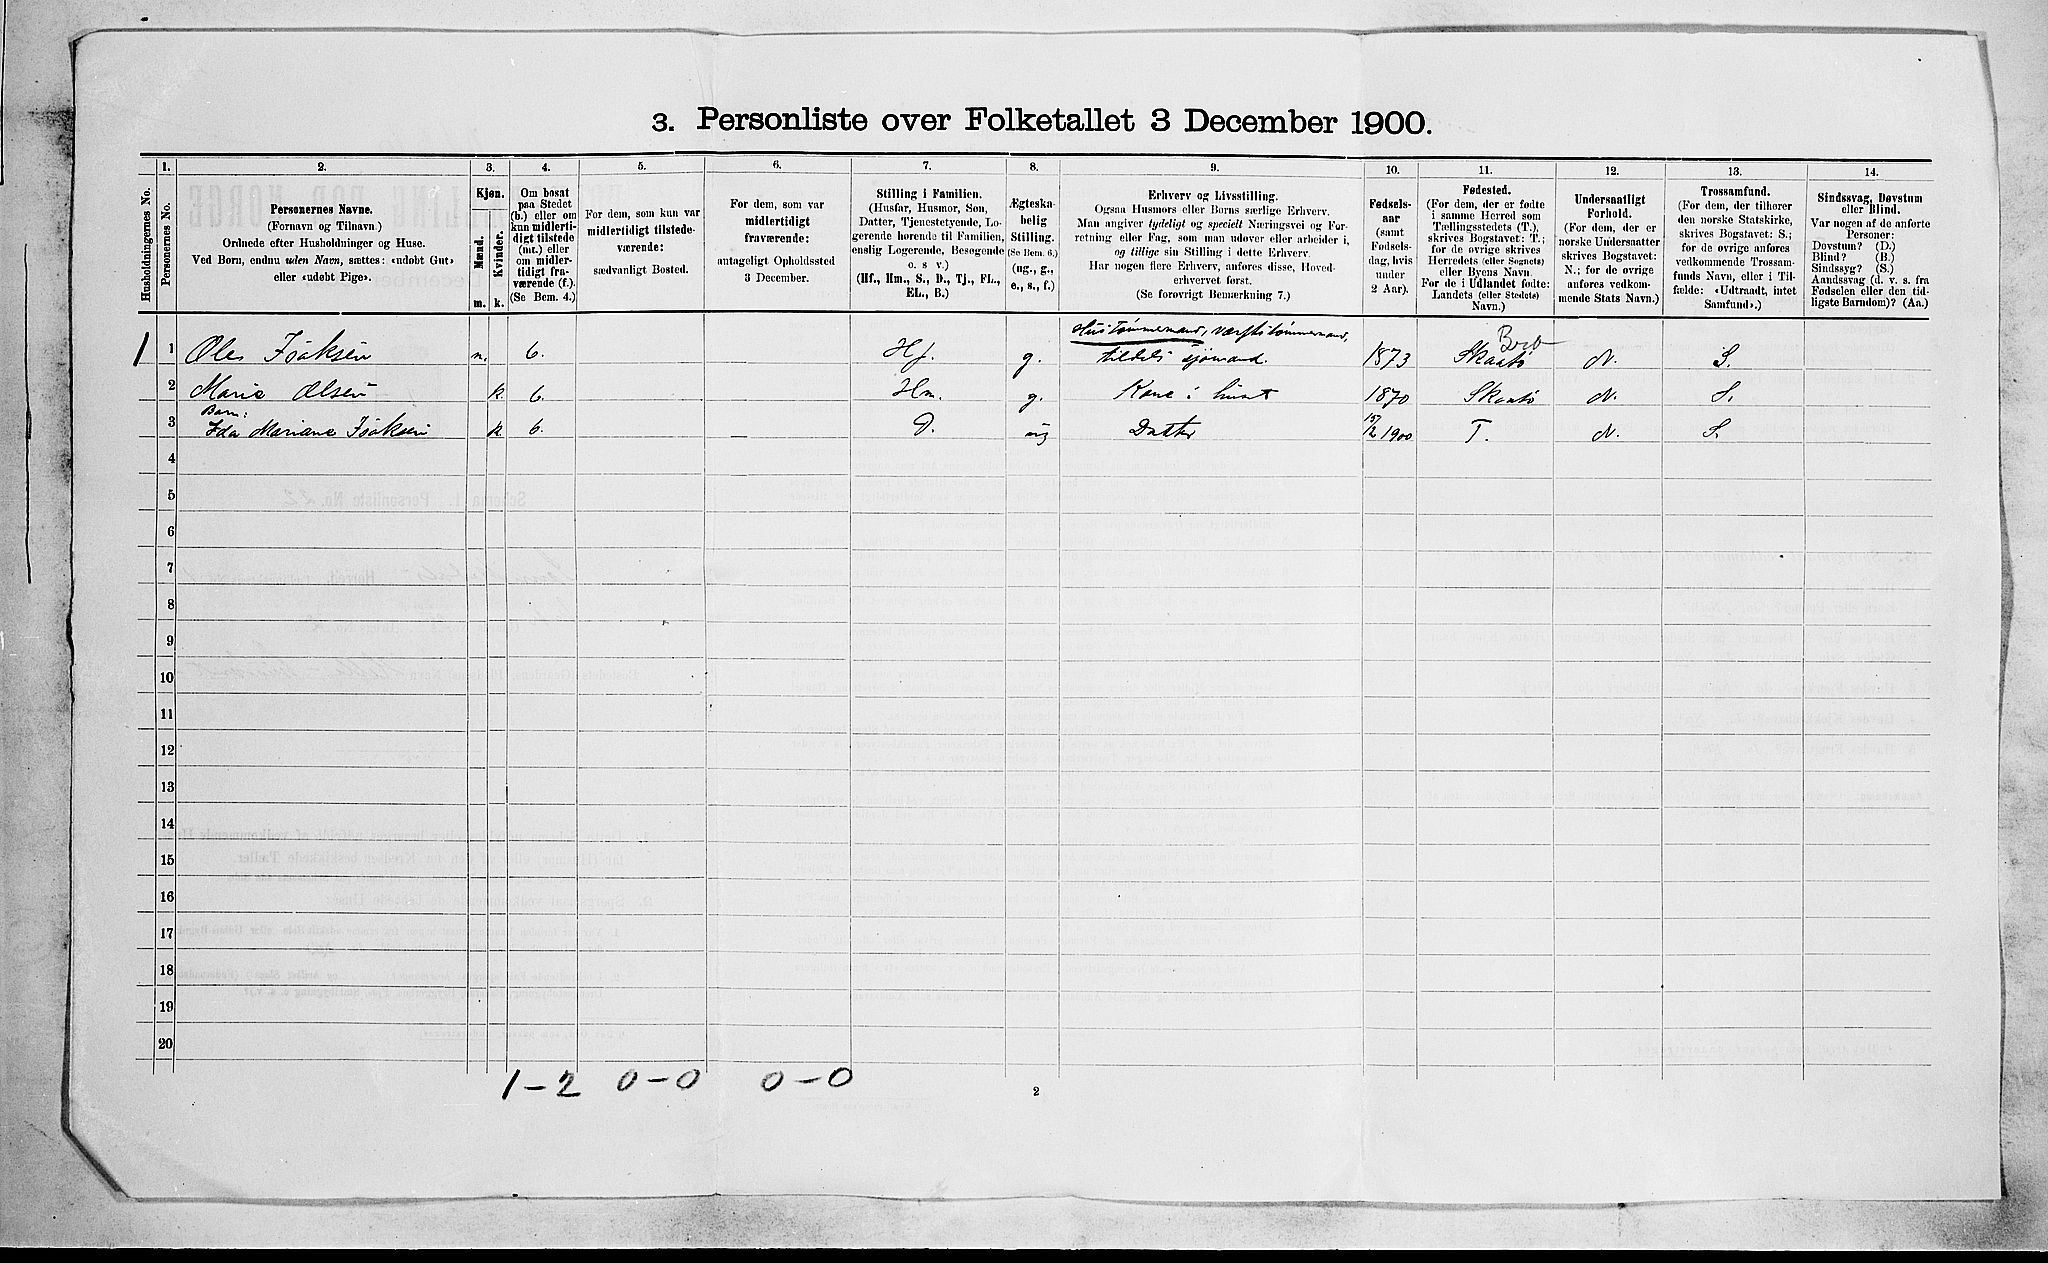 3. Personliste over Folketallet 3 December 1900.
1. 2. 3. 4. 5. 6. 7. 8. 9. 10. 11. 12. 13. 14.
Husholdningernes No.
Personernes No.
Personernes Navne.
(Fornavn og Tilnavn.)
Ordnede efter Husholdninger og Huse.
Ved Børn, endnu uden Navn, sættes: «udøbt Gut»
eller «udøbt Pige».
Kjøn.
Mænd.
Kvinder.
m. k.
Om bosat
paa Stedet
(b.) eller om
kun midlerti-
digt tilstede
(mt.) eller
om midler-
tidigt fra-
værende (f.).
(Se Bem. 4.)
For dem, som kun var
midlertidigt tilstede-
værende:
sædvanligt Bosted.
For dem, som var
midlertidigt
fraværende:
antageligt Opholdssted
3 December.
Stilling i Familien.
(Husfar, Husmor, Søn,
Datter, Tjenestetyende, Lo-
gerende hørende til Familien,
enslig Logerende, Besøgende
o. s v.)
(Hf., Hm., S., D., Tj., FL.,
EL., B.)
Ægteska-
belig
Stilling.
(Se Bem. 6.)
(ug., g.,
e., s., f.)
Erhverv og Livsstilling.
Ogsaa Husmors eller Børns særlige Erhverv.
Man angiver tydeligt og specielt Næringsvei og For-
retning eller Fag, som man udøver eller arbeider i,
og tillige sin Stilling i dette Erhverv.
Har nogen flere Erhverv, anføres disse, Hoved-
erhvervet først.
(Se forøvrigt Bemærkning 7.)
Fødsels-
aar
(samt
Fødsels-
dag, hvis
under
2 Aar).
Fødested.
(For dem, der er fødte
i samme Herred som
Tællingsstedets (T.),
skrives Bogstavet: T.;
for de øvrige skrives
Herredets (eller Sognets)
eller Byens Navn.
For de i Udlandet fødte:
Landets (eller Stedets)
Navn.)
Undersaatligt
Forhold.
(For dem, der er
norske Undersaatter
skrives Bogstavet:
N.; for de øvrige
anføres vedkom-
mende Stats Navn.)
Trossamfund.
(For dem, der tilhører
den norske Statskirke,
skrives Bogstavet: S.;
for de øvrige anføres
vedkommende Trossam-
funds Navn, eller i Til-
fælde: «Udtraadt, intet
Samfund».)
Sindssvag, Døvstum
eller Blind.
Var nogen af de anførte
Personer:
Døvstum? (D.)
Blind? (B.)
Sindssyg? (S.)
Aandssvag (d. v. s. fra
Fødselen eller den tid-
ligste Barndom)? (Aa.)
Hustømmermand, værftstømmermand,
1 1 Ole Isaksen m. b. Hf. g. tildels sjømand. 1873 Skaatø N. S.
2 Marie Olsen k. b. Hm. g. Kone i huset 1870 Skaatø N. S.
Barn:
3 Ida Mariane Isaksen k. b. — D. ug Datter 15/12 1900 T. N. S.
4
5
6
7
8
9
10
11
12
13
14
15
16
17
18
19
20
1-2 0-0 0-0
2